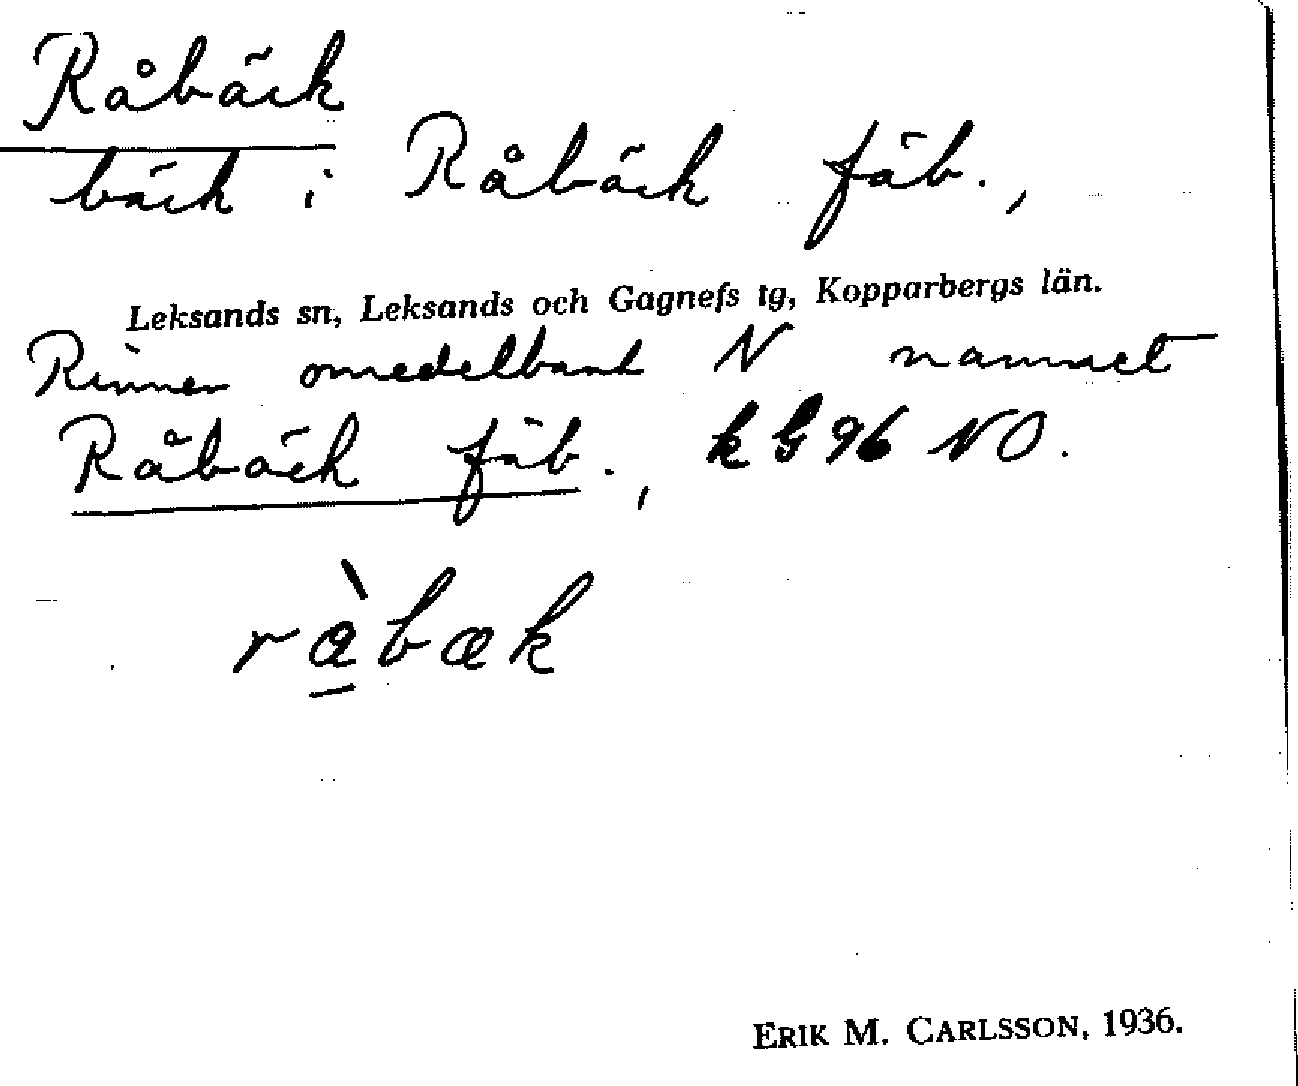 Råbäck
bäck i Råbäck fäb.,
Leksands sn, Leksands och Gagnefs tg, Kopparbergs län.
Rinner omedelbart N namnet
Råbäck fäb., k G 96 NO.
ràbæk
ERIK M. CARLSSON, 1936.